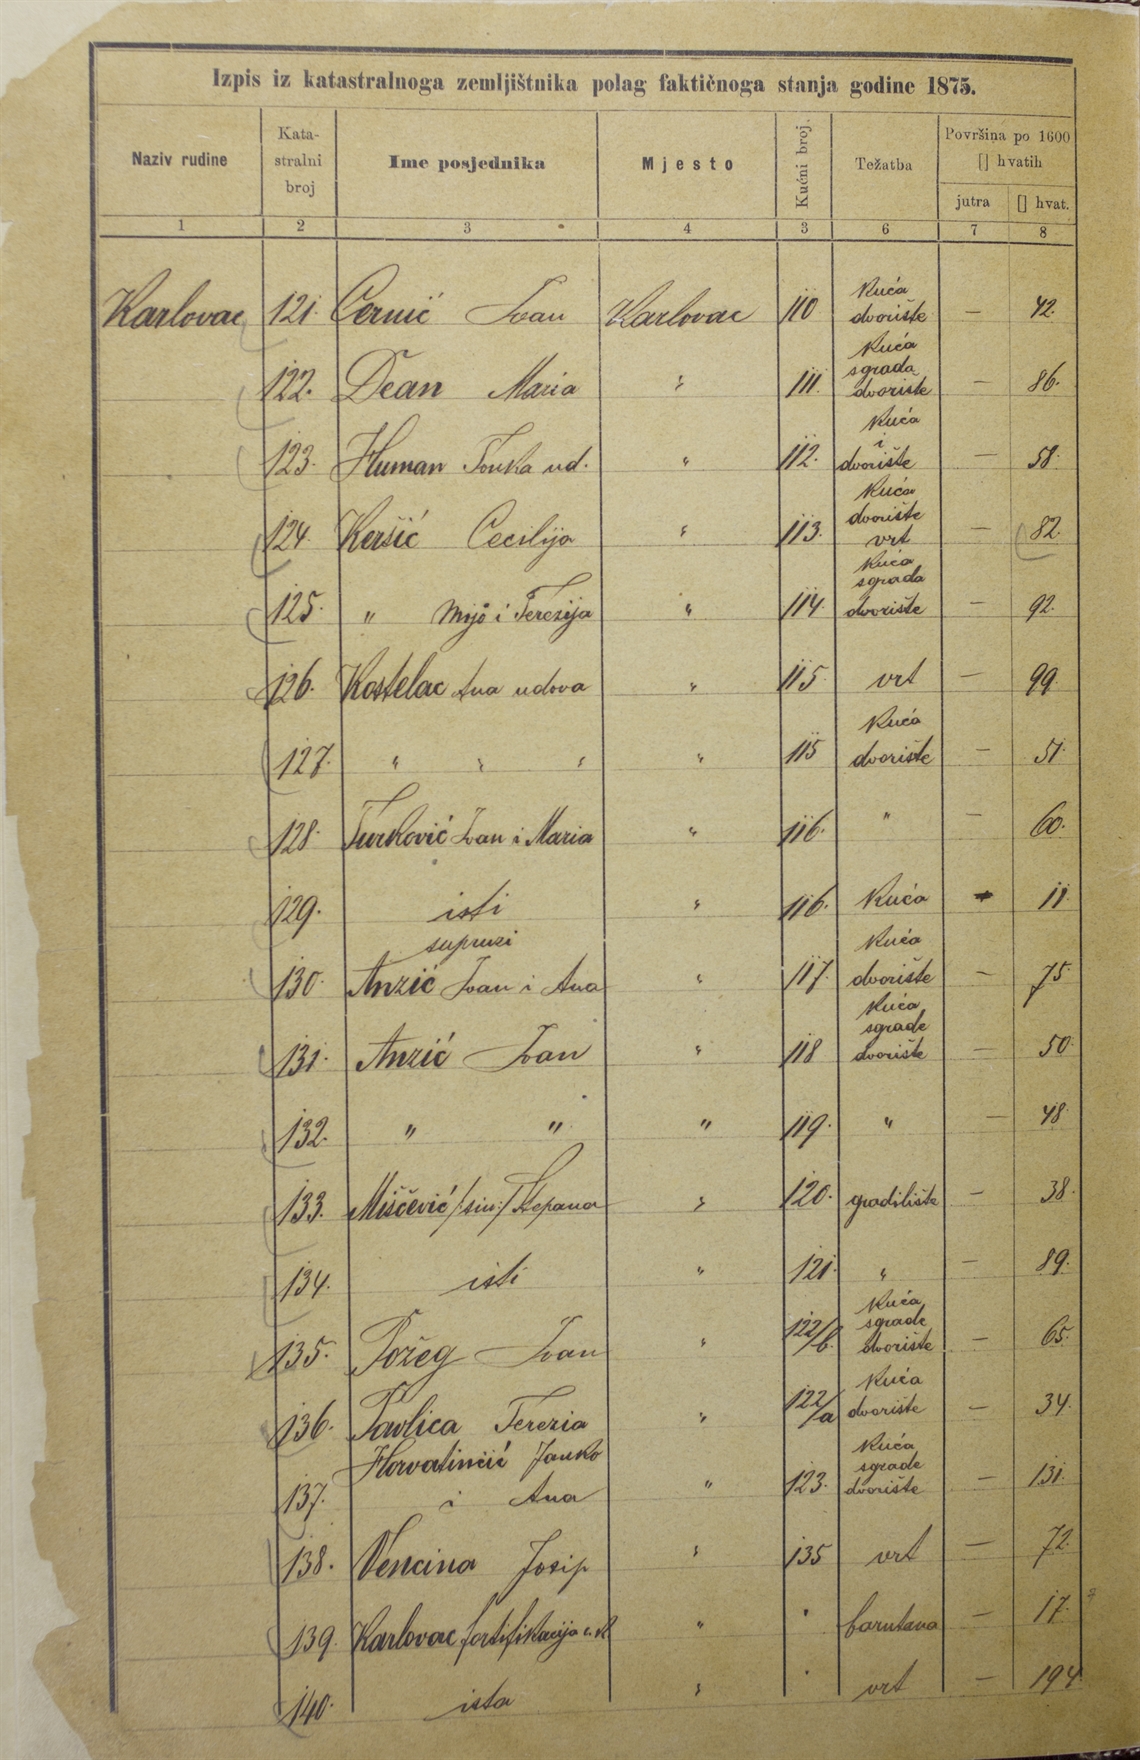 Izpis iz katastralnoga zemljištnika polag faktičnoga stanja godine 1875.
Naziv rudine | Kata-stralni broj | Ime posjednika | Mjesto | Kućni broj. | Težatba | Površina po 1600 [] hvatih
jutra | [] hvat.
1 | 2 | 3 | 4 | 3 | 6 | 7 | 8
Karlovac | 121. | Cernić Ivan | Karlovac | 110 | Kuća dvorište | — | 42.
122. | Dean Maria | " | 111. | Kuća sgrada dvorište | — | 86.
123. | Human Ivuka ud. | " | 112. | Kuća i dvorište | — | 58.
124. | Keršić Cecilija | " | 113. | Kuća dvorište vrt | — | 82.
125. | " Mijo i Terezija | " | 114. | Kuća sgrada dvorište | — | 92.
126. | Kostelac Ana udova | " | 115 | vrt | — | 99
127. | " " " | " | 115 | Kuća dvorište | — | 51.
128. | Turković Ivan i Maria | " | 116. | " | — | 60.
129. | isti | " | 116. | Kuća | — | 11.
130. | supruzi Anzić Ivan i Ana | " | 117. | Kuća dvorište | — | 75
131. | Anzić Ivan | " | 118 | Kuća sgrade dvorište | — | 50.
132. | " " | " | 119. | " | — | 48.
133. | Miščević /:sin:/ Stepana | " | 120. | gradilište | — | 38.
134. | isti | " | 121. | " | — | 89.
135. | Požeg Ivan | " | 122/b. | Kuća sgrade dvorište | — | 65.
136. | Pavlica Terezia | " | 122/a | Kuća dvorište | — | 34.
137. | Horvatinčić Janko i Ana | " | 123. | Kuća sgrade dvorište | — | 131.
138. | Vencina Josip | " | 135 | vrt | — | 72.
139. | Karlovac fortifikacija | " | barutana | — | 17.
140. | ista | " | vrt | — | 194